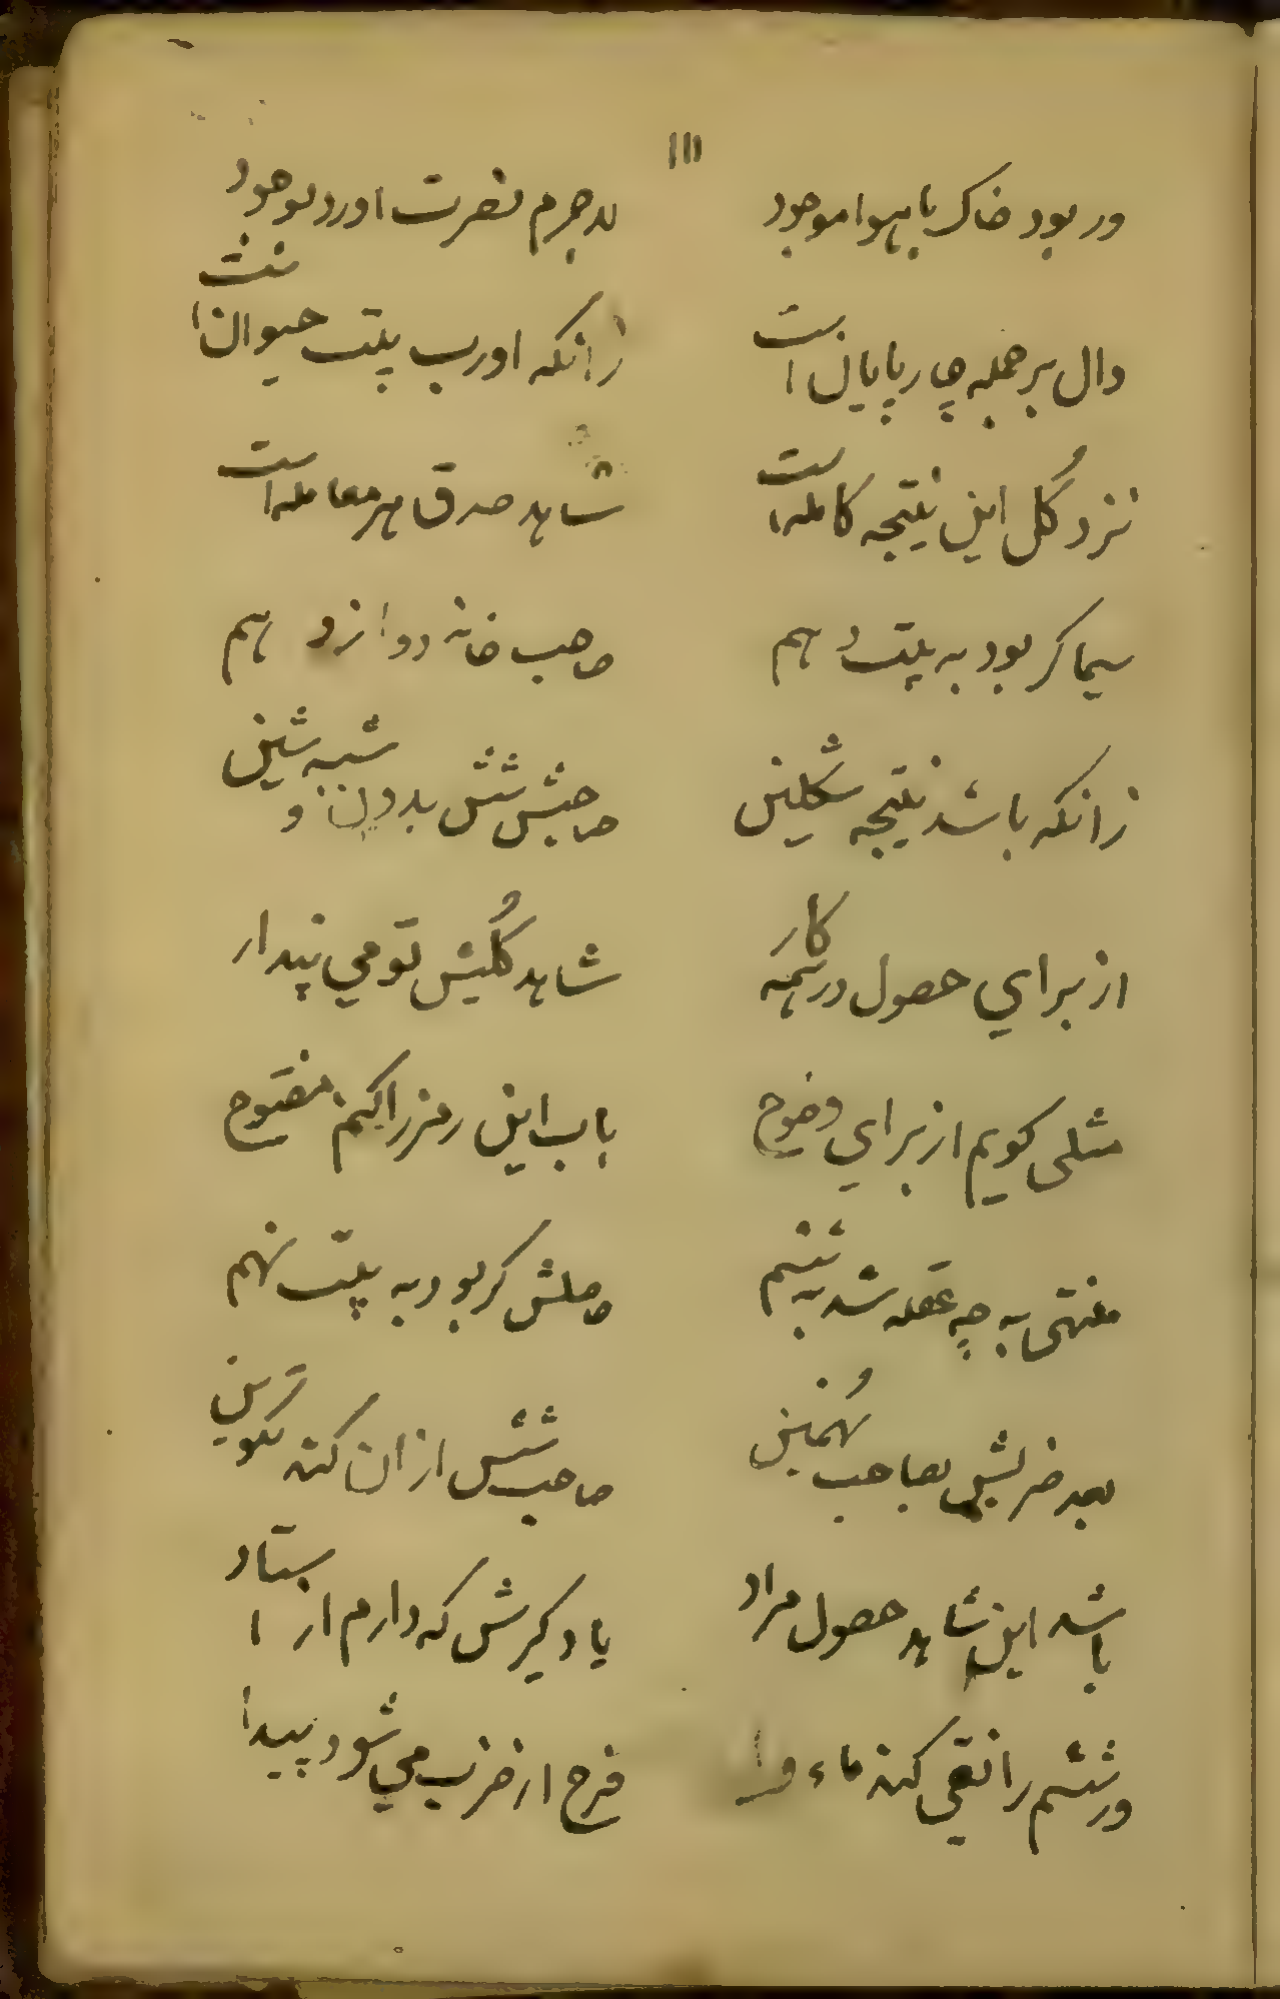 ١١١
ور بود خاک با هوا موجود لاجرم نصرت اورد بوجود
دال بر جمله چارپایان است زانکه اورب بیت حیوان است
نزد کل این نتیجه کامله است شاهد صدق هر معامله است
سیما کر بود به بیت دهم صاحب خانه دوازدهم
زانکه باشد نتیجه شکلین صاحبش شش بدون و شبه شین
از برای حصول در همه کار شاهد کلیش تو می پندار
مثلی کویم از برای وضوح باب این رمز را کنم مفتوح
منتهی به چه عقله شد به ششم حاملش کر بود به بیت نهم
بعد ضربش بصاحب نهمین صاحب شش ازان کند تکوین
باشد این شاهد حصول مراد یاد کیرش که دارم از استاد
ور ششم را نقی کند ماء فرح از ضرب می شود پیدا